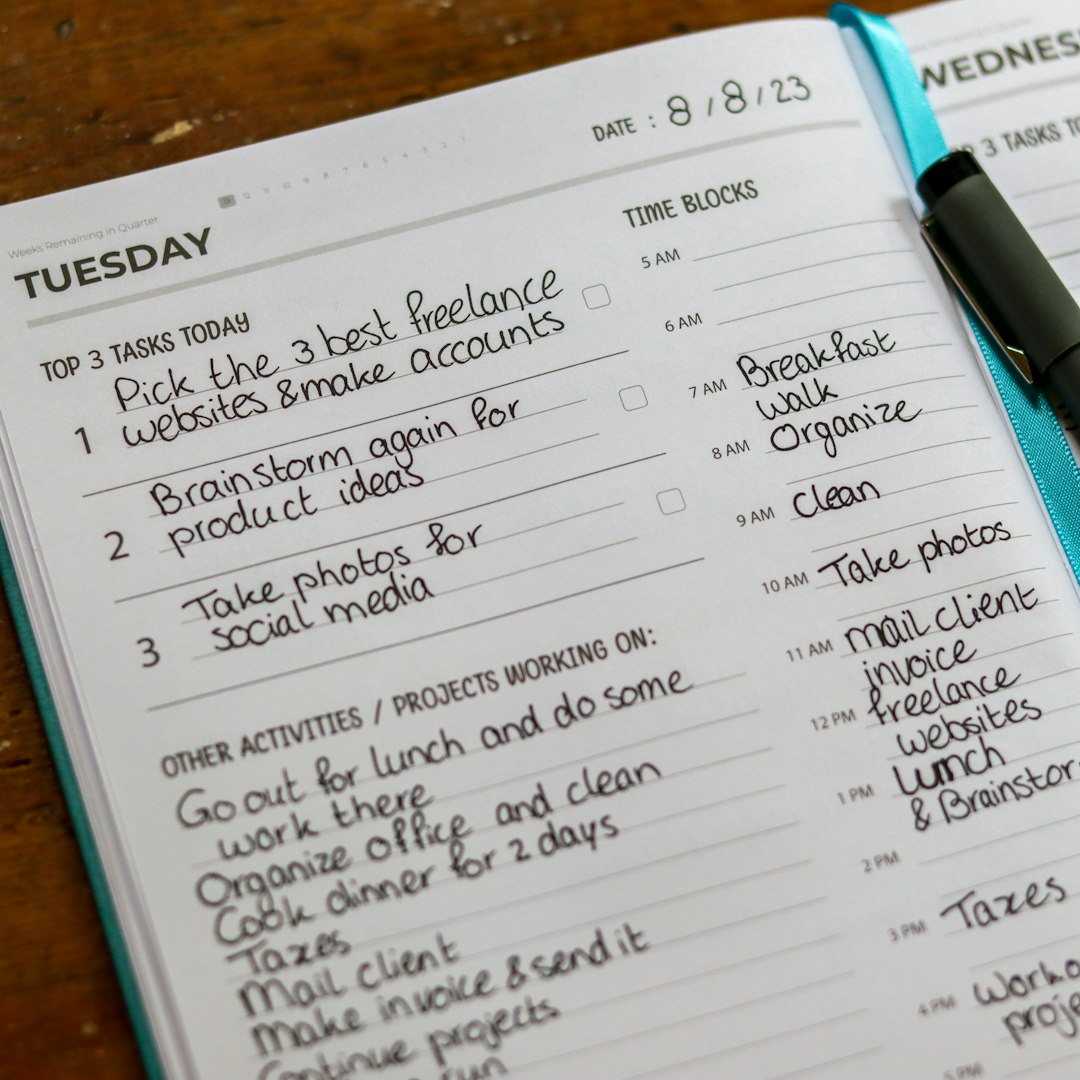 Weeks Remaining in Quarter
13 12 11 10 9 8 7 6 5 4 3 2 1
TUESDAY
DATE : 8 / 8 / 23
TOP 3 TASKS TODAY
1 Pick the 3 best freelance
websites & make accounts
2 Brainstorm again for
product ideas
3 Take photos for
social media
OTHER ACTIVITIES / PROJECTS WORKING ON:
Go out for lunch and do some
work there
Organize office and clean
Cook dinner for 2 days
Taxes
Mail client
Make invoice & send it
Continue projects
run
TIME BLOCKS
5 AM
6 AM
7 AM Breakfast
walk
8 AM Organize
9 AM Clean
10 AM Take photos
11 AM mail client
invoice
12 PM freelance
websites
1 PM Lunch
& Brainstor
2 PM
3 PM Taxes
4 PM Work o
proje
5 PM
WEDNES
3 TASKS TO